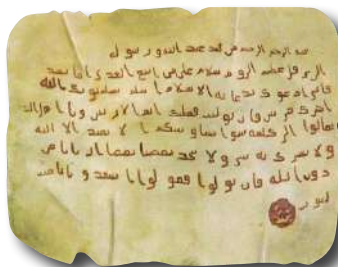 الرحمن الرحيم من محمد عبد الله ورسول
هرقل عظيم الروم سلام على من اتبع الهدى اما بعد
فانى ادعوك بدعاية الاسلام اسلم تسلم يوتك الله
اجرك مرتين فان توليت فعليك اثم الاريسين ويا اهل
تعالوا الى كلمة سوا بيننا وبينكم ان لا نعبد الا الله
ولا نشرك به شيا ولا يتخذ بعضنا بعضا اربابا من
دون الله فان تولوا فقولوا اشهدوا بانا مس
لمون